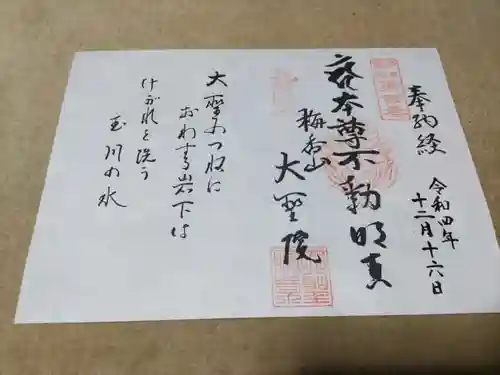 奉納経
令和四年
十二月十六日
本尊不動明真
梅香山
大聖院
大聖の収に
おわする岩下は
けがれを洗う
玉川の水